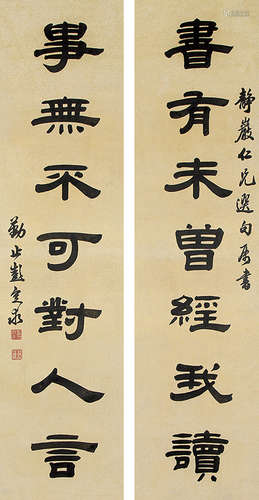 書有未曾經我讀
靜巖仁兄選句屬書
事無不可對人言
勤止彭定求